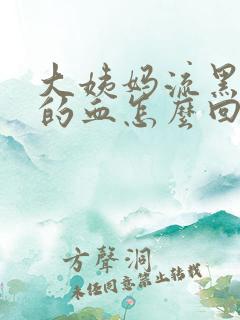 大姨妈流黑
的血怎麽回
方聲洞
未经同意禁止转载